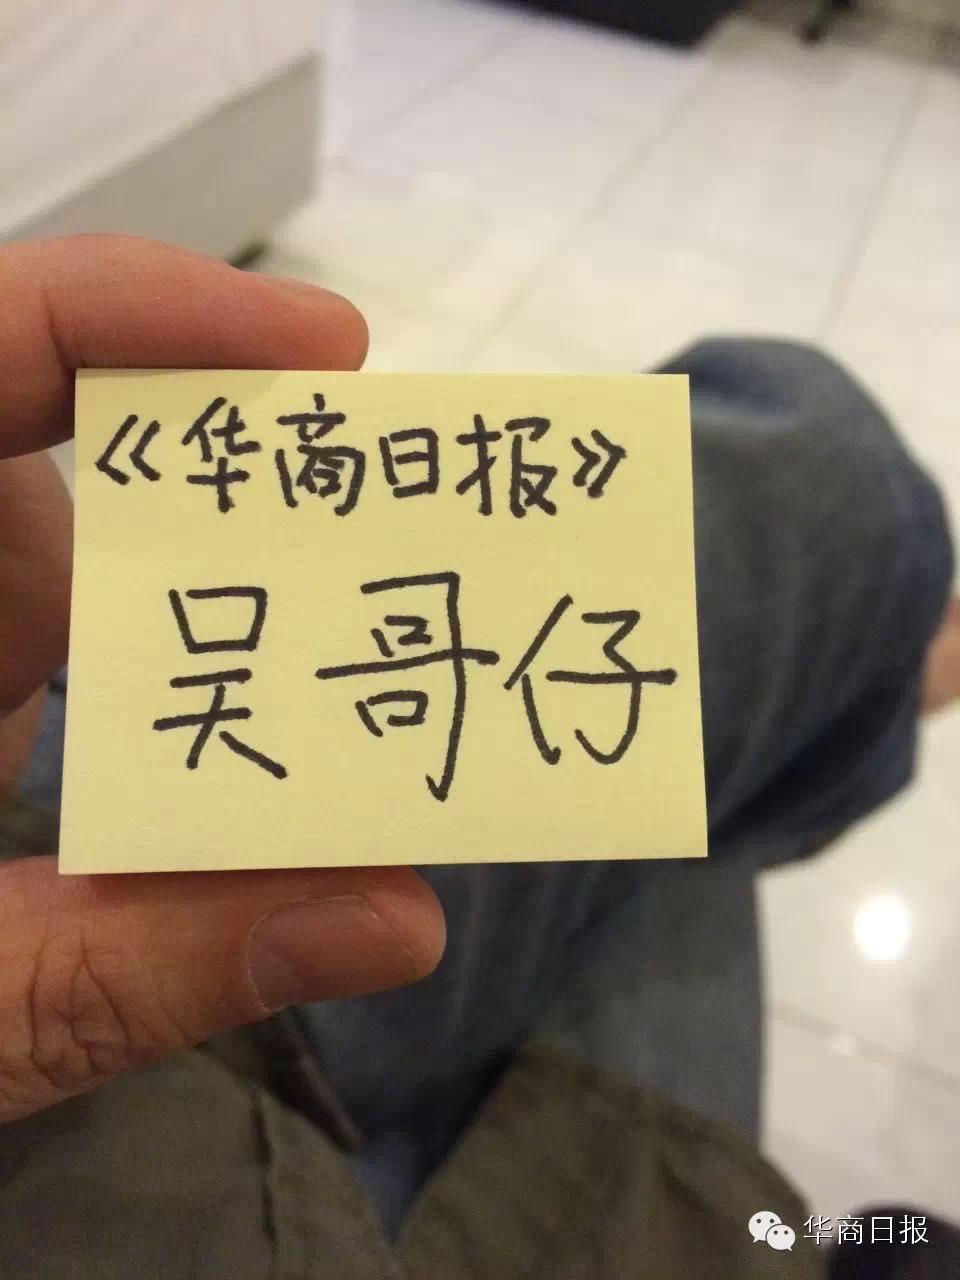 《华商日报》
吴哥仔
华商日报